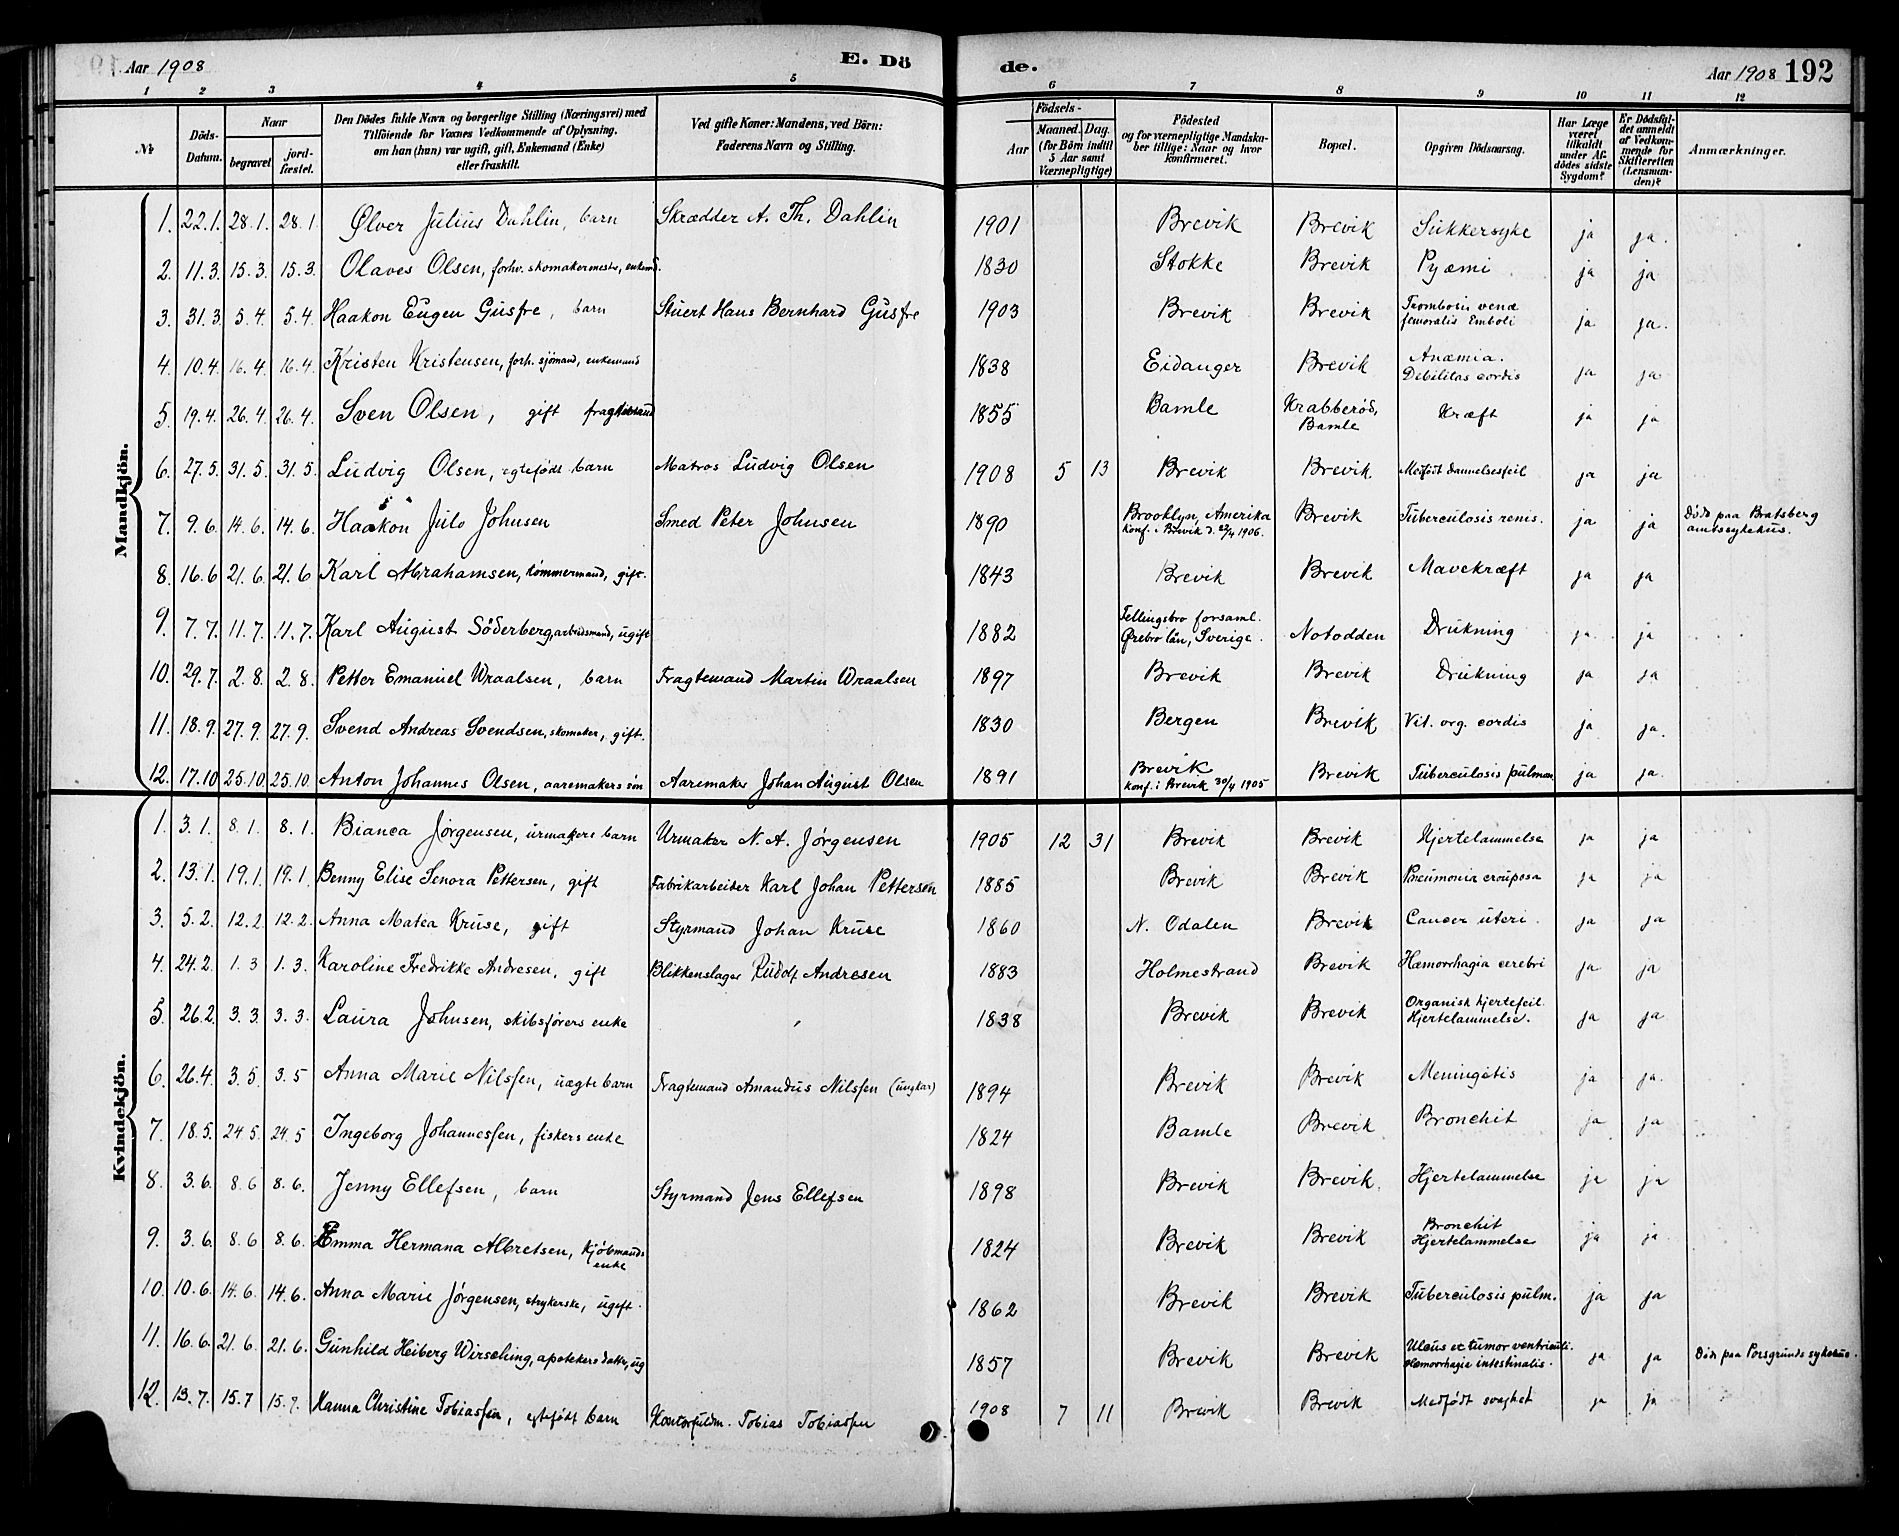 Aar 1908
E. Dö
de.
Aar 1908 192
1 2 3 4 5 6 7 8 9 10 11 12
No
Döds-Datum.
Naar
begravet
jordfæstet.
Den Dödes fulde Navn og borgerlige Stilling (Næringsvei) med
Tilföiende for Voxnes Vedkommende af Oplysning,
om han (hun) var ugift, gift, Enkemand (Enke)
eller fraskilt.
Ved gifte Koner: Mandens, ved Börn:
Faderens Navn og Stilling.
Födsels-
Aar
Maaned. Dag.
(for Börn indtil
5 Aar samt
Værnepligtige)
Födested
og for værnepligtige Mandska-
ber tillige: Naar og hvor
konfirmeret.
Bopæl.
Opgiven Dödsaarsag.
Har Læge
været
tilkaldt
under Af-
dödes sidste
Sygdom?
Er Dödsfal-
det anmeldt
af Vedkom-
mende for
Skifteretten
(Lensman-
den)?
Anmærkninger.
Mandkjön.
1. 22.1. 28.1. 28.1. Ølver Julius Dahlin, barn Skrædder A. Th. Dahlin 1901 Brevik Brevik Sukkersyke ja ja.
2. 11.3. 15.3. 15.3. Olaves Olsen, forhv. skomakermester, enkemd. 1830 Stokke Brevik Pyæmi ja ja
3. 31.3 5.4. 5.4. Haakon Eugen Gusfre, barn Stuert Hans Bernhard Gusfre 1903 Brevik Brevik Trombosis venæ
femoralis Emboli ja ja.
4. 10.4. 16.4. 16.4. Kristen Kristensen, forh. sjömand, enkemand 1838 Eidanger Brevik Anæmia.
Debilitas cordis ja ja
5. 19.4. 26.4. 26.4. Sven Olsen, gift fragtemand 1855 Bamle Krabberød,
Bamle Kræft ja ja
6. 27.5. 31.5. 31.5. Ludvig Olsen, egtefödt barn Matros Ludvig Olsen 1908 5 13 Brevik Brevik Medfödt dannelsesfeil ja ja
7. 9.6. 14.6. 14.6. Haakon Julo Johnsen Smed Peter Johnsen 1890 Brooklyn, Amerika
konf. i Brevik d. 22/4 1906. Brevik Tuberculosis renis. ja ja Död paa Bratsberg
amtssykehus.
8. 16.6 21.6. 21.6 Karl Abrahamsen, tömmermand, gift. 1843 Brevik Brevik Mavekræft ja ja
9. 7.7. 11.7. 11.7. Karl August Söderberg, arbeidsmand, ugift 1882 Fellingsbro forsaml.
Ørebro län, Sverige. Notodden Drukning ja ja
10. 29.7. 2.8. 2.8. Petter Emanuel Wraalsen, barn Fragtemand Martin Wraalsen 1897 Brevik Brevik Drukning ja ja
11. 18.9. 27.9. 27.9. Svend Andreas Svendsen, skomaker, gift. 1830 Bergen Brevik Vit. org. cordis ja ja.
12. 17.10 25.10 25.10. Anton Johannes Olsen, aaremakers sön Aaremaker Johan August Olsen 1891 Brevik
konf. i Brevik 30/4 1905 Brevik Tuberculosis pulmon. ja ja.
Kvindekjön.
1. 3.1. 8.1. 8.1. Bianca Jørgensen, urmakers barn Urmaker N. A. Jørgensen 1905 12 31 Brevik Brevik Hjertelammelse ja ja
2. 13.1. 19.1. 19.1. Benny Elise Senora Pettersen, gift Fabrikarbeider Karl Johan Pettersen 1885 Brevik Brevik Pneumonia crouposa ja ja
3. 5.2. 12.2. 12.2. Anna Matea Kruse, gift Styrmand Johan Kruse 1860 N. Odalen Brevik Cancer uteri. ja ja
4. 24.2. 1.3 1.3. Karoline Fredrikke Andresen, gift Blikkenslager Rudolf Andresen 1883 Holmestrand Brevik Hæmorrhagia cerebri ja ja
5. 26.2. 3.3 3.3. Laura Johnsen, skibsførers enke 1838 Brevik Brevik Organisk hjertefeil.
Hjertelammelse. ja ja
6. 26.4. 3.5. 3.5 Anna Marie Nilsfen, uægte barn Fragtemand Amandus Nilsfen (ungkar) 1894 Brevik Brevik Meningitis ja ja.
7. 18.5. 24.5. 24.5 Ingeborg Johannesfen, fiskers enke 1824 Bamle Brevik Bronchit ja ja
8. 3.6. 8.6 8.6. Jenny Ellefsen, barn Styrmand Jens Ellefsen 1898 Brevik Brevik. Hjertelammelse ja ja
9. 3.6. 8.6 8.6. Emma Hermana Albretsen, kjöbmands
enke 1824 Brevik Brevik Bronchit
Hjertelammelse ja ja
10. 10.6. 14.6. 14.6. Anna Marie Jørgensen, strykerske, ugift. 1862 Brevik Brevik Tuberculosis pulm. ja ja
11. 16.6. 21.6. 21.6. Gunhild Heiberg Wirsching, apotekers datter, ug 1857 Brevik Brevik Ulcus et tumor ventriculi.
Hæmorrhagia intestinalis. ja ja Död paa Porsgrunds sykehus.
12. 13.7. 15.7 15.7. Hanna Christine Tobiasfen, egtefödt barn Kontorfuldm. Tobias Tobiasfen 1908 7 11 Brevik Brevik Medfödt svaghet ja ja